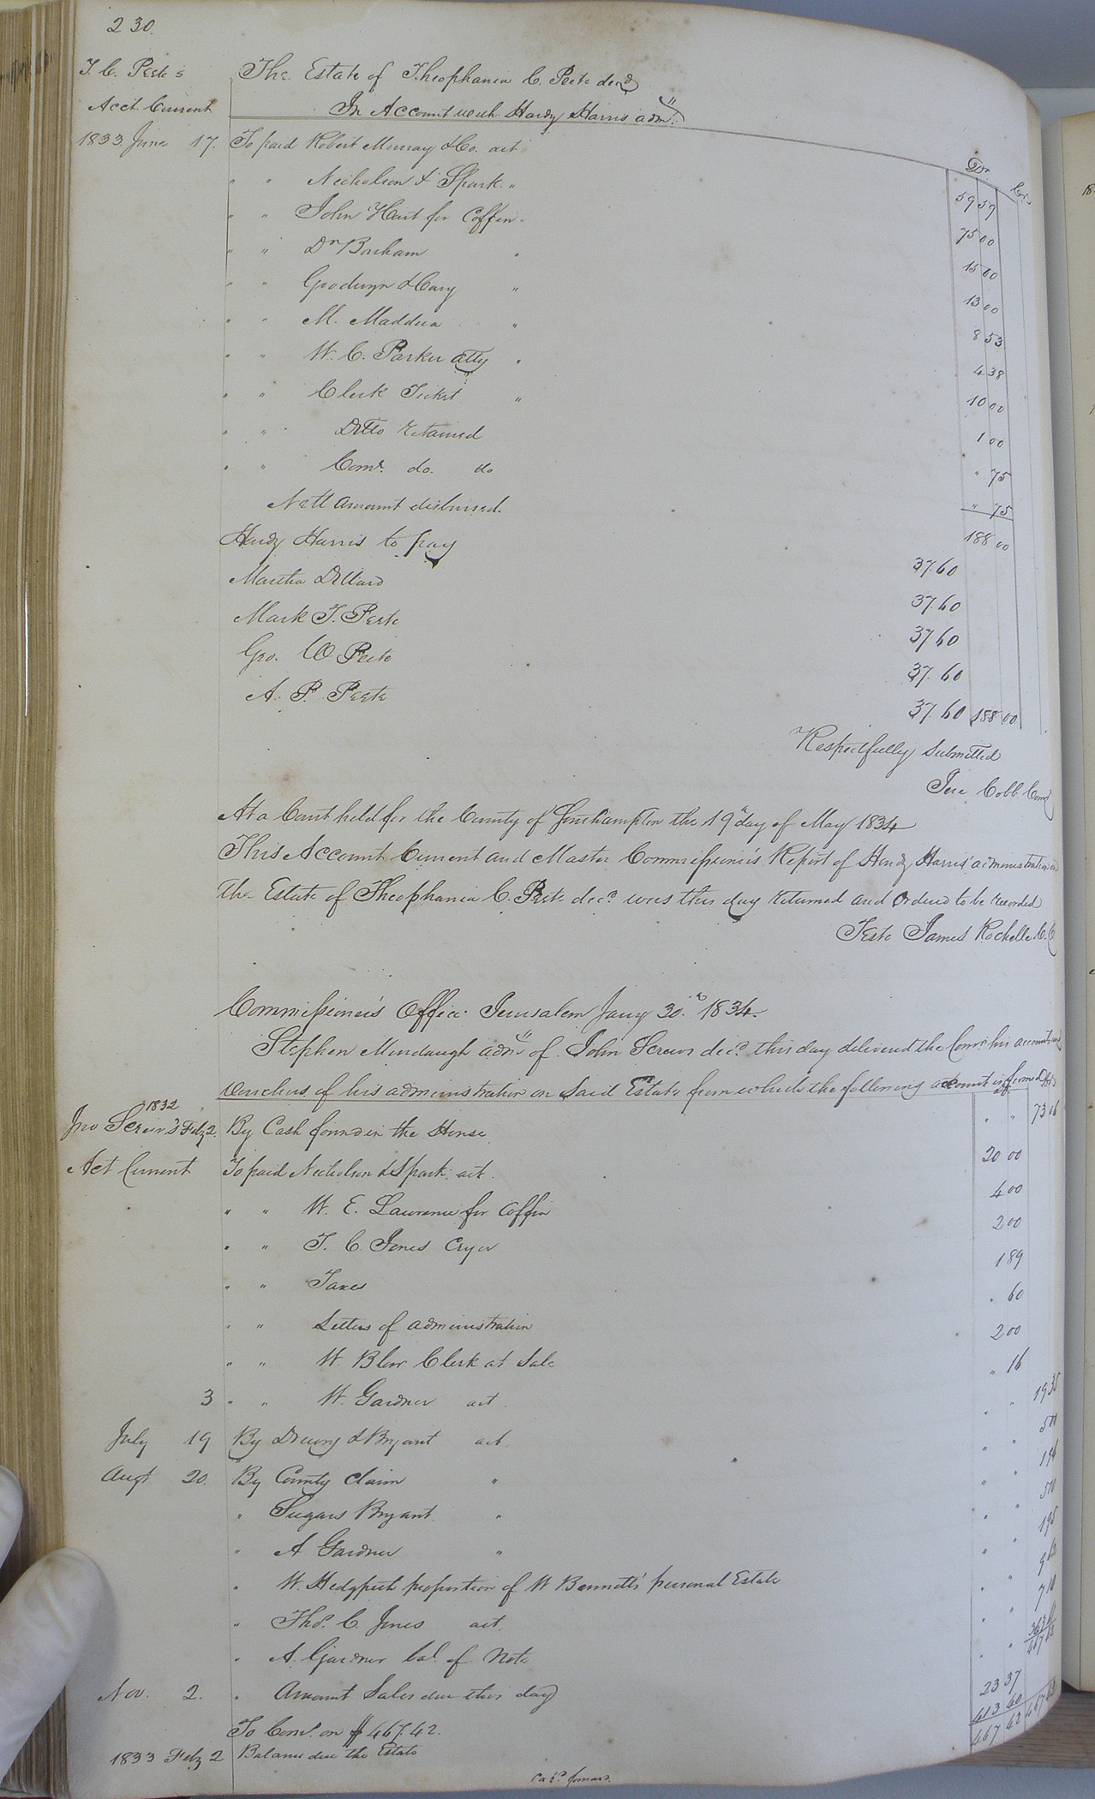 230.
T. C. Peete's The Estate of Theophania C. Peete decd
Acct. Current In Account with Hardy Harris admr.
Dr. Crs
1833 June 17. To paid Robert Murray & Co. act 59 59
" " Nicholson & Spark " 75 00
" " John Hart for Coffin " 15 00
" " Dr Bonham " 13 00
" " Goodwyn & Cary " 8 53
" " M. Maddera " 4 38
" " W. C. Parker atty " 10 00
" " Clerk Ticket " 1 00
" " Ditto returned " 75
" " Comr. do. do " 75
Nett amount disbursed. 188 00
Hardy Harris to pay 37.60
Martha Dillard 37.60
Mark T. Peete 37 60
Geo. W Peete 37.60
A. P. Peete 37 60 188 00
Respectfully Submitted
Jere Cobb Comr
At a Court held for the County of Southampton the 19" day of May 1834
This Account Current and Master Commissioner's Report of Hardy Harris administration on
the Estate of Theophania C. Peete decd. was this day returned and Ordered to be recorded
Teste James Rochelle C. C.
Commissioner's Office Jerusalem Jany 30th 1834.
Stephen Mundaugh admr of John Screws decd. this day delivered the Comr his accounts and
vouchers of his administration on said Estate from which the following account is formed
Jno Screws's 1832 Feby 2. By Cash found in the House " " 73 16
Act Current To paid Nicholson & Spark act. 20 00
" " W. E. Lawrence for Coffin 4 00
" " T. C. Jones Cryer 2 00
" " Taxes 1 89
" " Letters of administration " 60
" " W Blow Clerk at Sale 2 00
3 " " W. Gardner act. " 16
July 19 By Drewry & Bryant act. " " 19 35
Augt 20. By County Claim "
" Sugars Bryant "
" A Gardner "
" W. Hedgpeth proportion of W Bennett's personal Estate
" Thos. C. Jones act.
" A. Gardner bal. of Note
Nov. 2. " Amount Sales due this day
To Comr. on $467.42. 23 37
1833 Feby 2 Balance due the Estate 413 40
467 42 467 42
Card. forward.